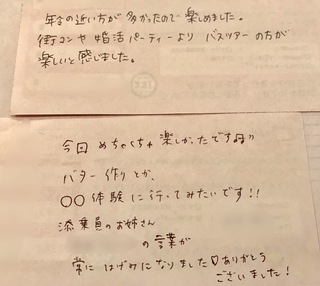 年令の近い方が多かったので楽しめました。
街コンや婚活パーティーよりバスツアーの方が
楽しいと感じました。
今回めちゃくちゃ楽しかったです
バター作りとか、
○○体験に行ってみたいです!!
添乗員のお姉さん
の言葉が
常にはげみになりました♡ありがとう
ございました!